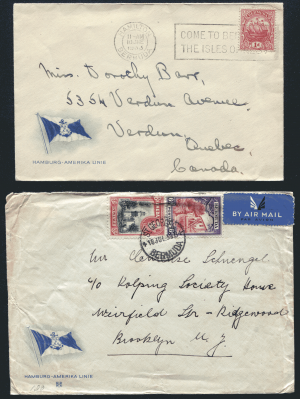 HAMILTON
BERMUDA
COME TO BER
THE ISLES O
Miss. Dorothy Barr,
5354 Verdun Avenue,
Verdun,
Quebec,
Canada.
HAMBURG-AMERIKA LINIE
BY AIR MAIL
BERMUDA
Mr
c/o Kolping Society House
Ridgewood
Brooklyn N.J
HAMBURG-AMERIKA LINIE